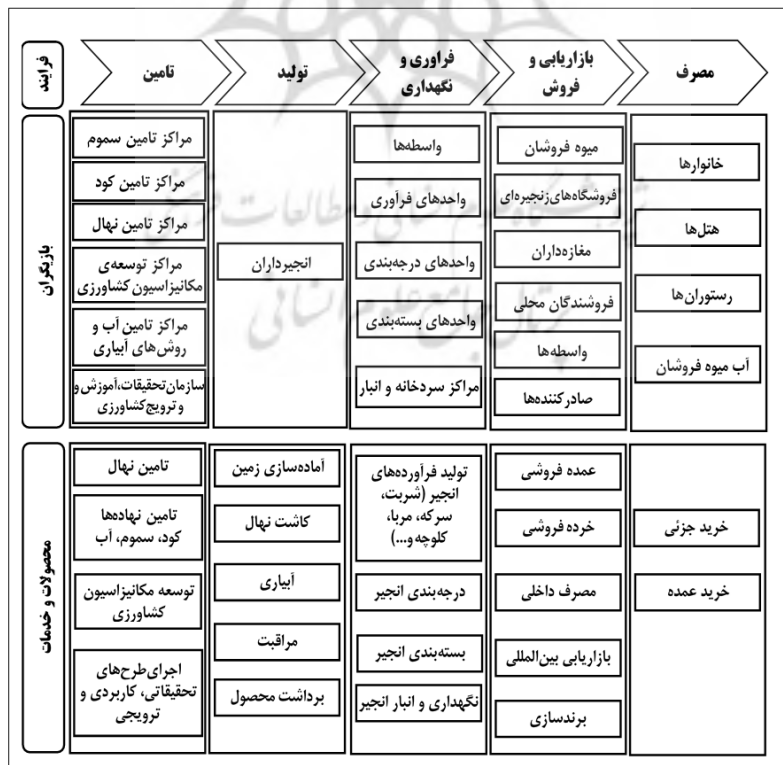 فرایند
تامین
تولید
فراوری و
نگهداری
بازاریابی و
فروش
مصرف
بازیگران
مراکز تامین سموم
مراکز تامین کود
مراکز تامین نهال
مراکز توسعه‌ی
مکانیزاسیون کشاورزی
مراکز تامین آب و
روش‌های آبیاری
سازمان‌تحقیقات،آموزش و
و ترویج‌کشاورزی
انجیرداران
واسطه‌ها
واحدهای فرآوری
واحدهای درجه‌بندی
واحدهای بسته‌بندی
مراکز سردخانه و انبار
میوه فروشان
فروشگاه‌های‌زنجیره‌ای
مغازه‌داران
فروشندگان محلی
واسطه‌ها
صادرکننده‌ها
خانوارها
هتل‌ها
رستوران‌ها
آب میوه فروشان
محصولات و خدمات
تامین نهال
تامین نهاده‌ها
کود، سموم، آب
توسعه مکانیزاسیون
کشاورزی
اجرای‌طرح‌های
تحقیقاتی، کاربردی و
ترویجی
آماده‌سازی زمین
کاشت نهال
آبیاری
مراقبت
برداشت محصول
تولید فرآورده‌های
انجیر (شربت،
سرکه، مربا،
کلوچه و...)
درجه‌بندی انجیر
بسته‌بندی انجیر
نگهداری و انبار انجیر
عمده فروشی
خرده فروشی
مصرف داخلی
بازاریابی بین‌المللی
برندسازی
خرید جزئی
خرید عمده
پژوهشگاه علوم انسانی و مطالعات فرهنگی
پرتال جامع علوم انسانی